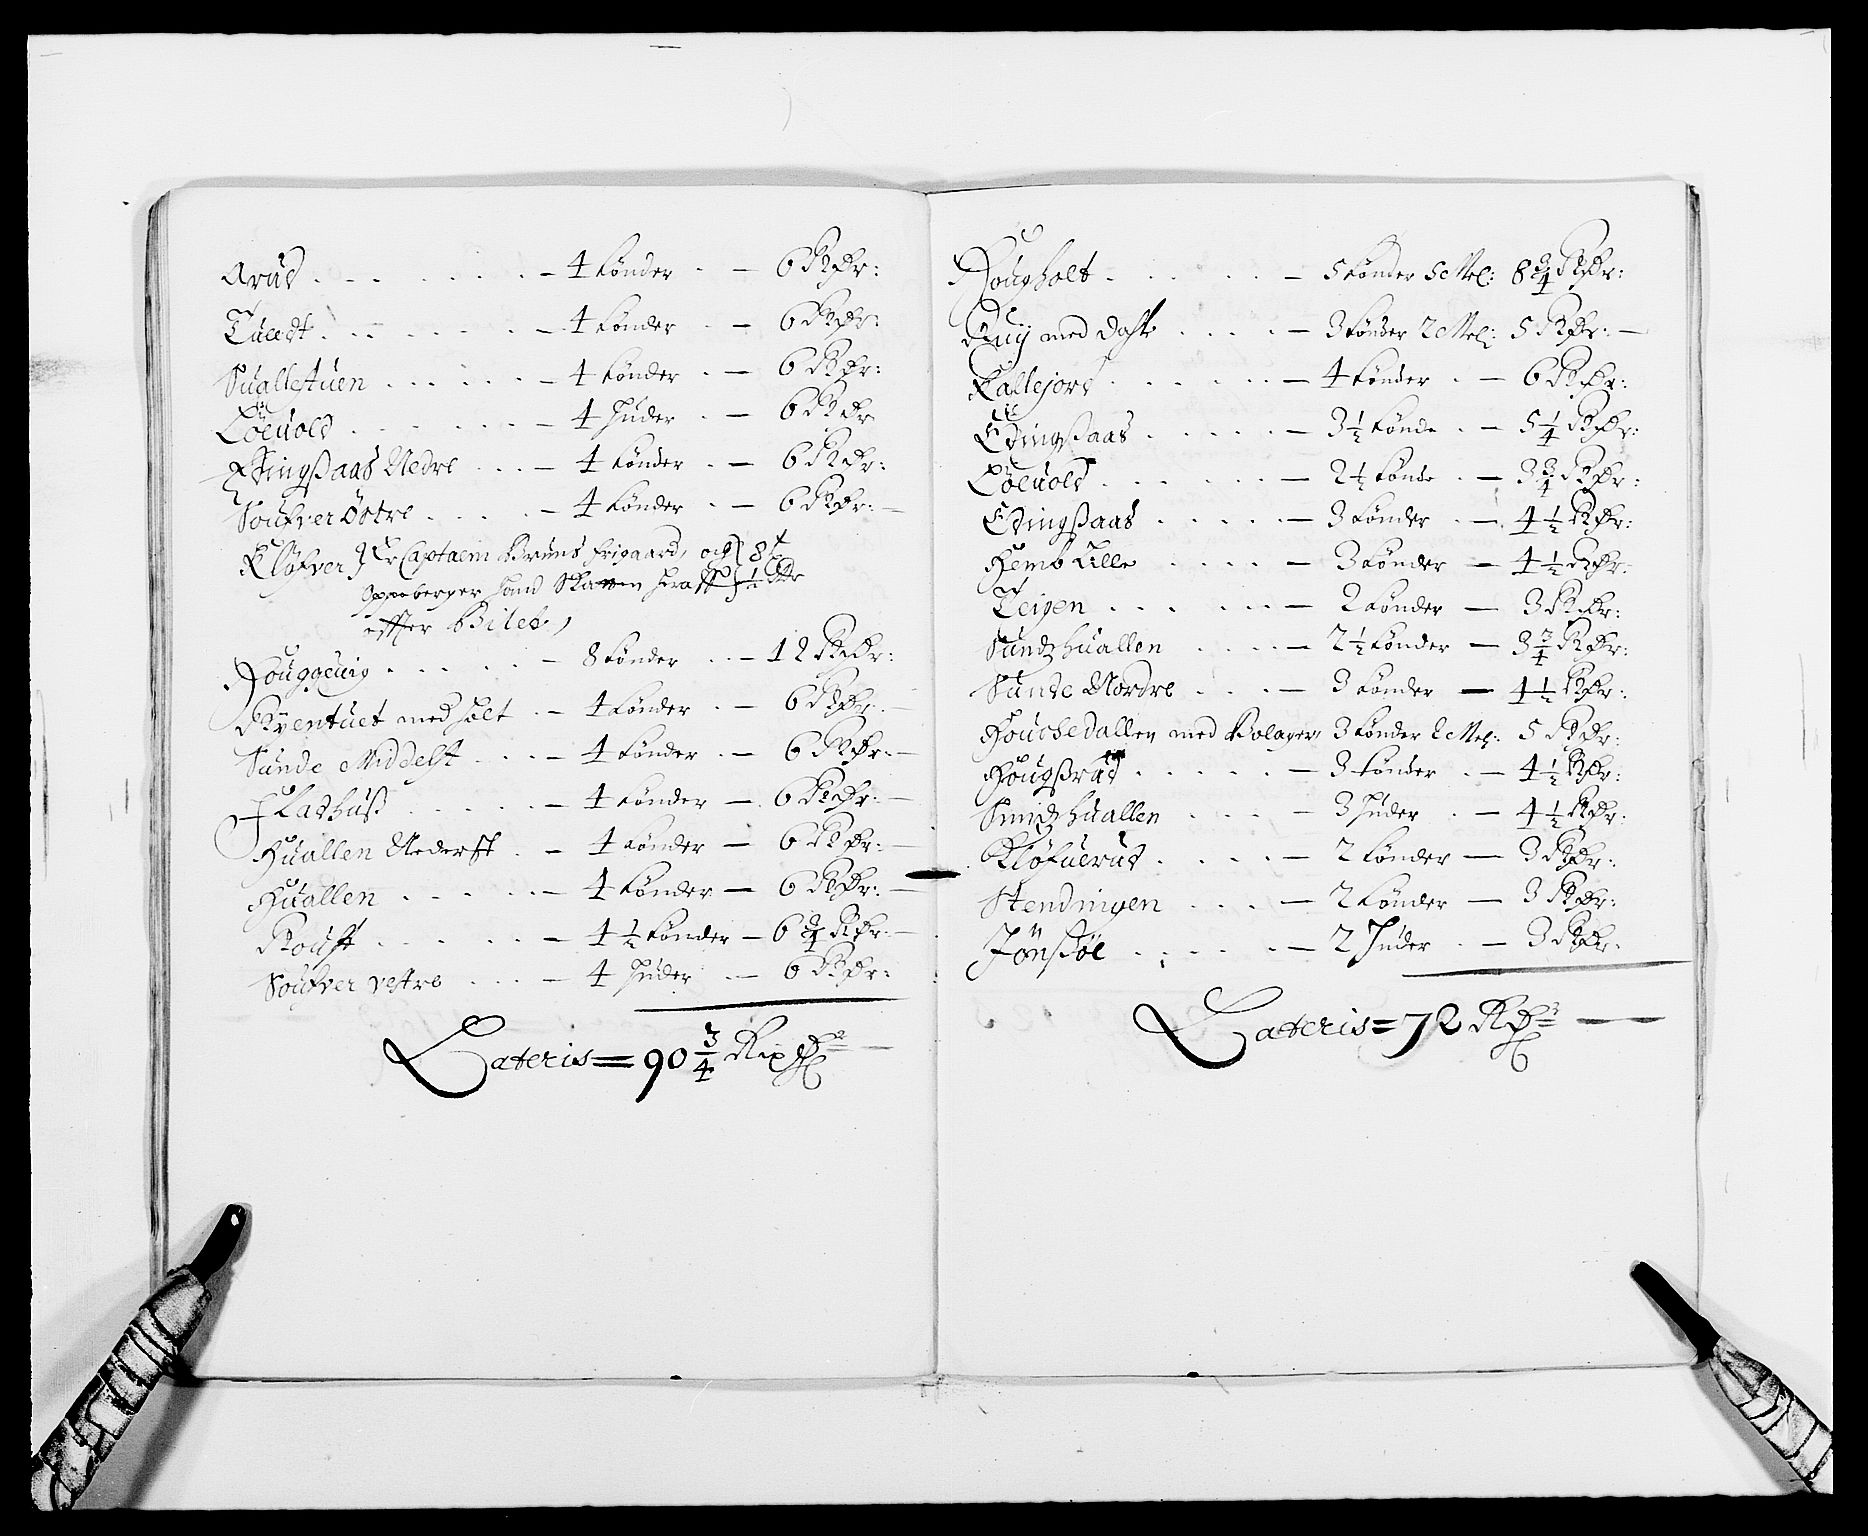 Arud - - - - 4 tønder - 6 Rdr:
Tuedt - - - - 4 tønder - 6 Rdr:
Suallestuen - - - - 4 tønder - 6 Rdr:
Löeuold - - - - 4 huder - 6 Rdr
Edingßaas Nedre - - - 4 tønder - 6 Rdr:
Soufver Östre - - - - 4 tønder - 6 Rdr:
Kløfver } Er Captaein Bruns frigaard, och } 8
oppeberger hand Skatten
effter Bilet,
Houggeuig - - - - 8 tønder - 12 Rdr:
Kventuet med holt - 4 tønder - 6 Rdr:
Sunde Middelst - - - 4 tønder - 6 Rdr:
Fladhuß - - - - 4 tønder - 6 Rdr:
Huallen Nederst - - 4 tønder - 6 Rdr:
Huallen - - - - 4 tønder - 6 Rdr:
Roust - - - - 4 ½ tønder - 6 ¾ Rdr:
Soufver vestre - - - 4 huder - 6 Rdr:
Lateris = 90 ¾ Rix
Hougholt - - - - 5 tønder 5 Mel: 8 ¾ Rdr:
Ruij med - - - - 3 tønder 2 Mel: 5 Rdr:
Kallejord - - - - 4 tønder - 6 Rdr:
Edingßaas - - - - 3 ½ tønde - 5 ¼ Rdr:
Löeuold - - - - 2 ½ tønde - 3 ¾ Rdr:
Edingßaas - - - - 3 tønder - 4 ½ Rdr:
Hemb Lille - - - - 3 tønder - 4 ½ Rdr:
Teigen - - - - 2 tønder - 3 Rdr:
Sundzhuallen - - - - 2 ½ tønder - 3 ¾ Rdr:
Sunde Nordre - - - 3 tønder - 4 ½ Rdr:
Houchedallen med Bolager 3 tønder 2 Mel: 5 Rdr:
Hougßrud - - - - 3 tønder - 4 ½ Rdr:
Smidzhuallen - - - 3 huder - 4 ½ Rdr:
Kløfuerud - - - - 2 tønder - 3 Rdr:
Stendningen - - - 2 tønder - 3 Rdr:
Jönsböe - - - - 2 huder - 3 Rdr:
Lateris = 72 Rdr